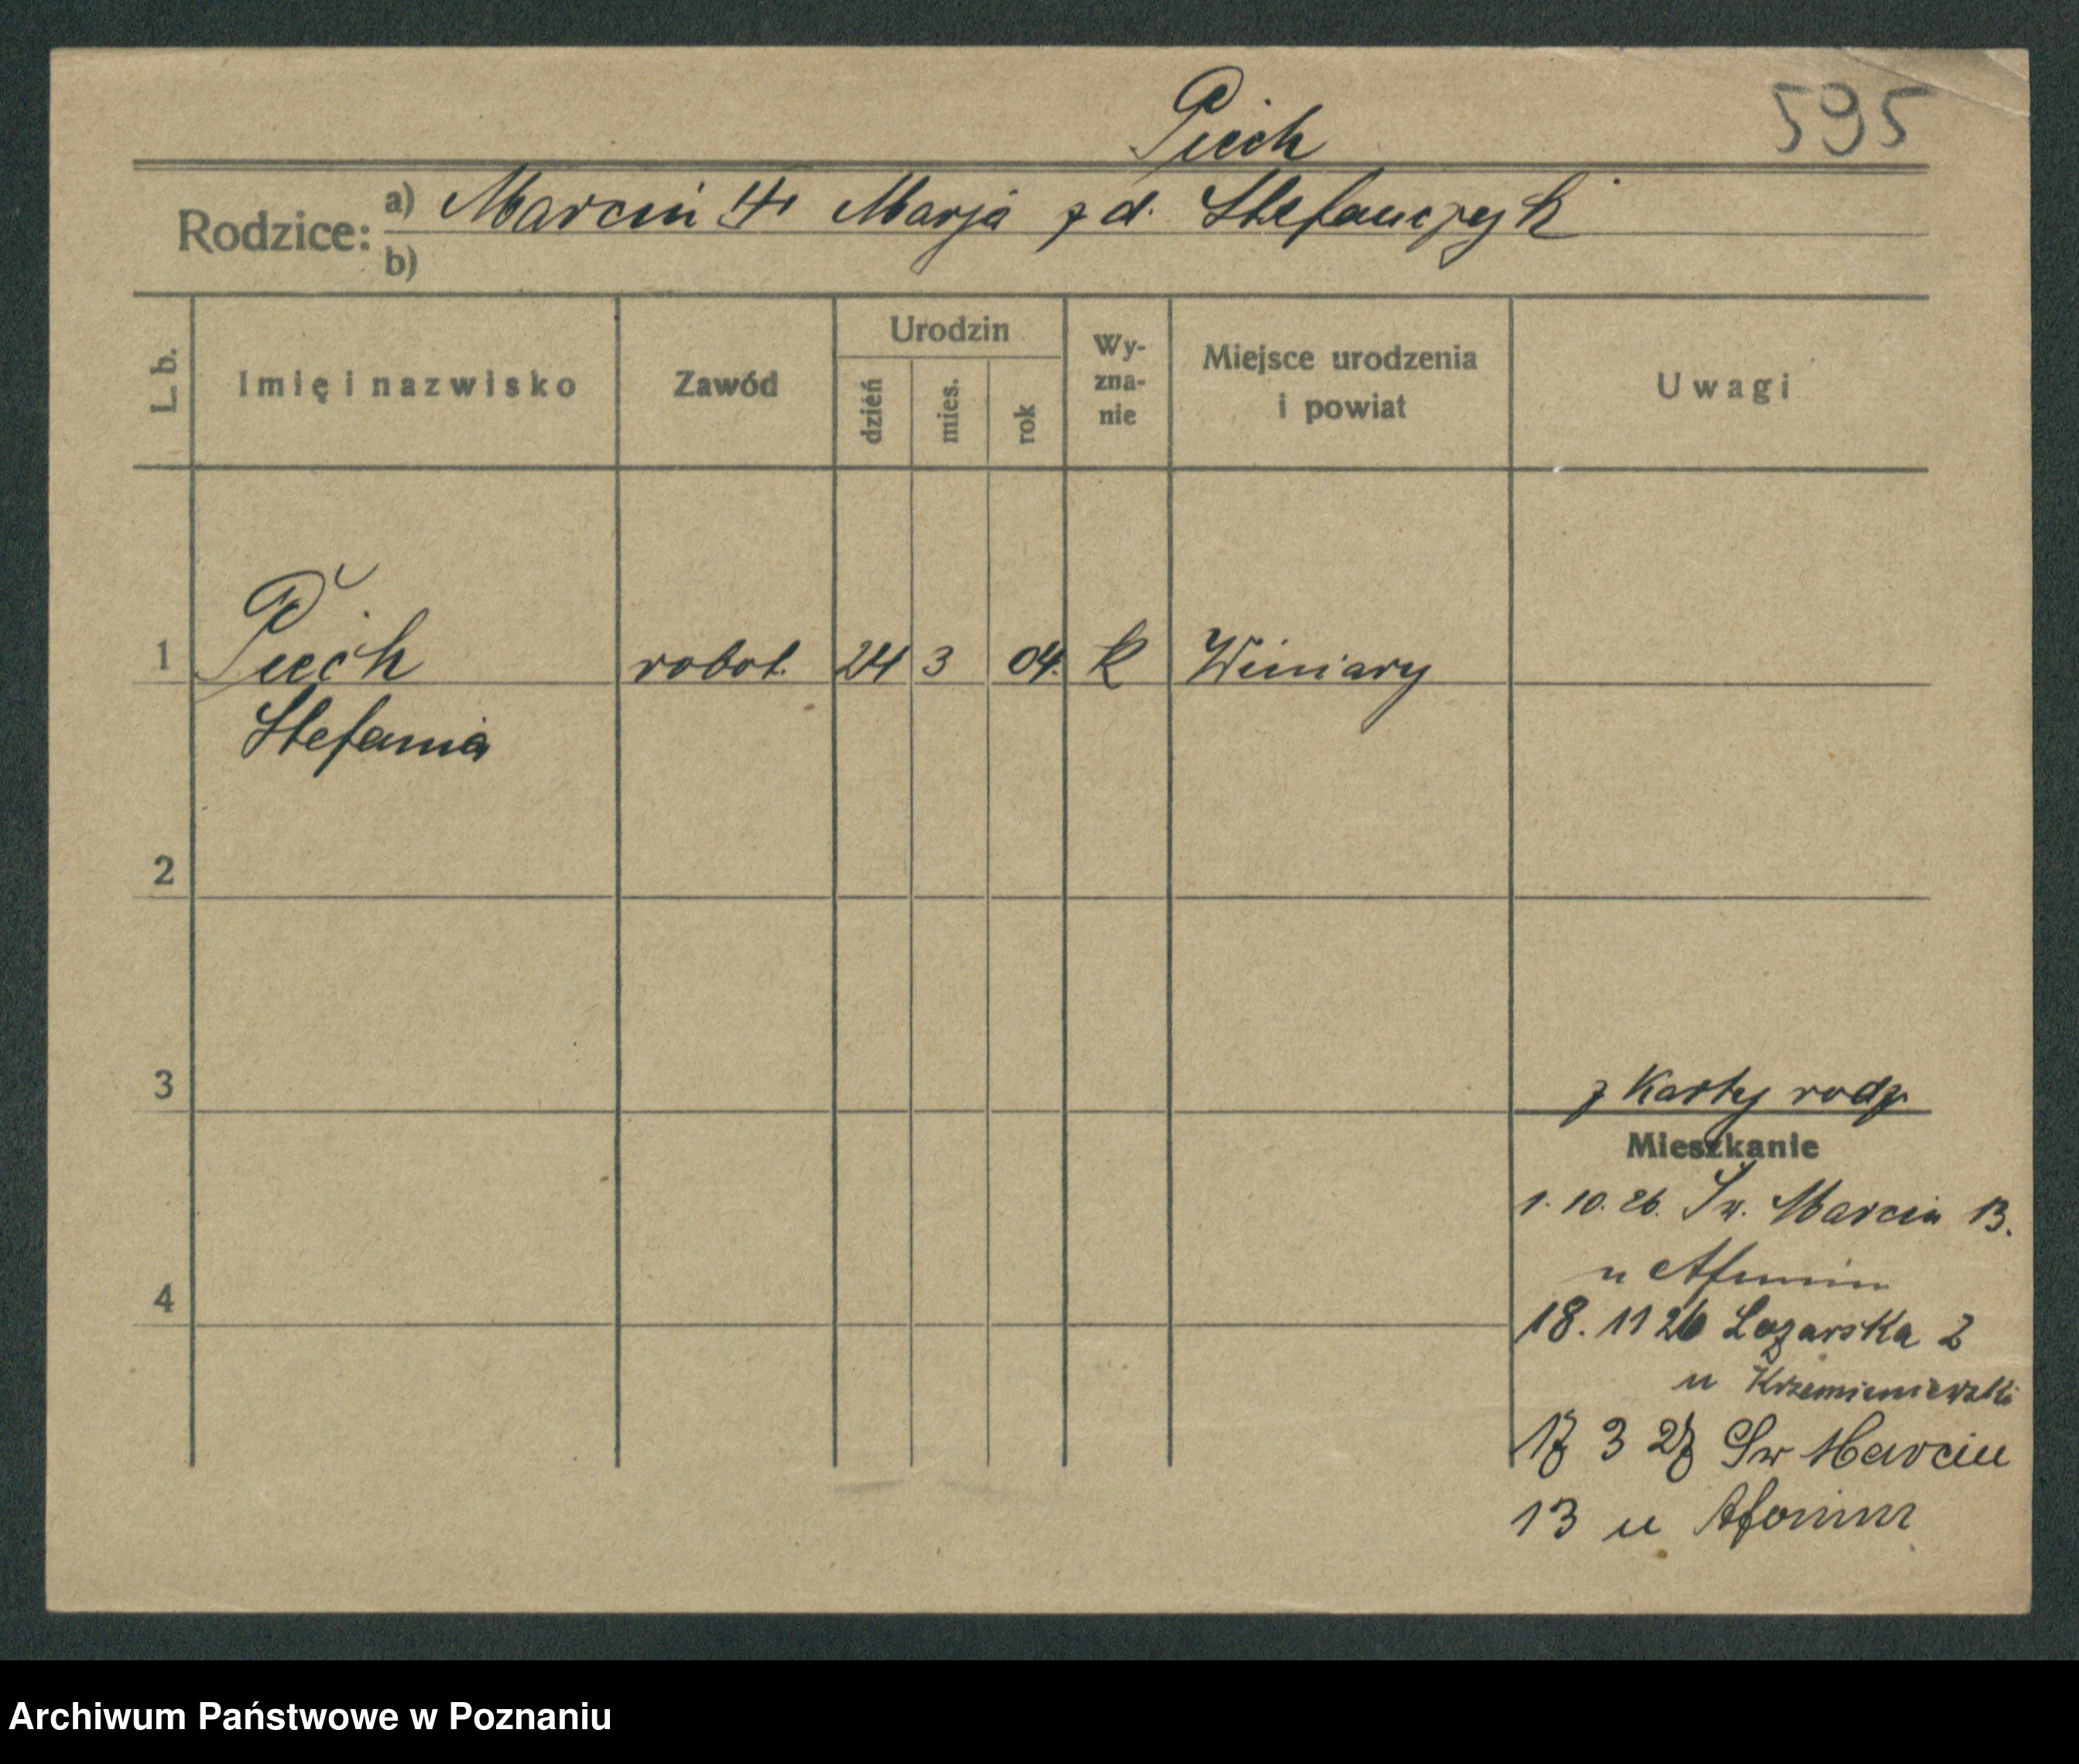 Piech
595
Rodzice:
a) Marcin i Marja z d. Stefańczyk
b)
L. b.
Imię i nazwisko
Zawód
Urodzin
dzień
mies.
rok
Wy-
zna-
nie
Miejsce urodzenia
i powiat
Uwagi
1 Piech robot. 24 3 04. k Winiary
Stefania
2
3
z Karty rodz.
Mieszkanie
1. 10. 26. Św. Marcin 13.
u
4
18. 11 26 Łazarska 2
u Krzemieniewski
17 3 27 Św Marcin
13 u
Archiwum Państwowe w Poznaniu